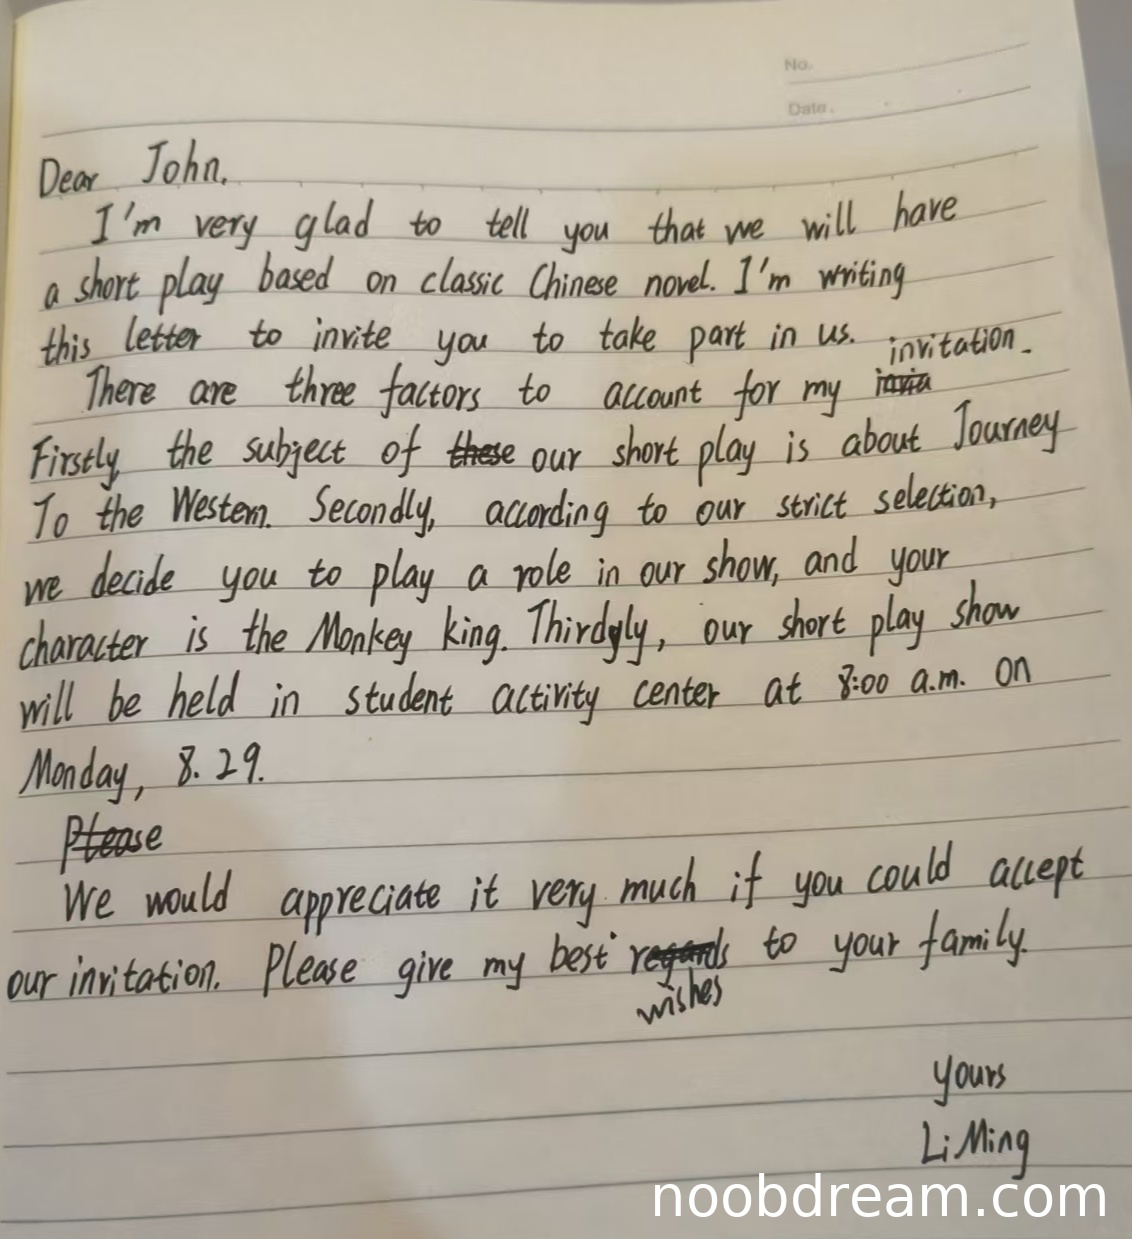 No.
Date.
Dear John,
I'm very glad to tell you that we will have
a short play based on classic Chinese novel. I'm writing
this letter to invite you to take part in us.
There are three factors to account for my invitation.
Firstly, the subject of these our short play is about Journey
To the Western. Secondly, according to our strict selection,
we decide you to play a role in our show, and your
character is the Monkey king. Thirdgly, our short play show
will be held in student activity center at 8:00 a.m. on
Monday, 8. 29.
Please
We would appreciate it very much if you could accept
our invitation. Please give my best regards to your family.
wishes
yours
Li Ming
noobdream.com